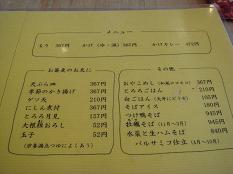 メニュー
もり 367円 かけ(冷・温) 367円 かけカレー 472円
お蕎麦のお友に
天ぷら 367円
季節のかき揚げ 367円
ゲソ天 210円
にしん煮付 367円
とろろ月見 157円
大根おろし 52円
玉子 52円
その他
おやこめし 367円
とろろごはん 210円
白ごはん
そばアイス 180円
つけ鴨そば 945円
牡蠣そば 945円
水菜と生ハムそば 840円
バルサミコ仕立